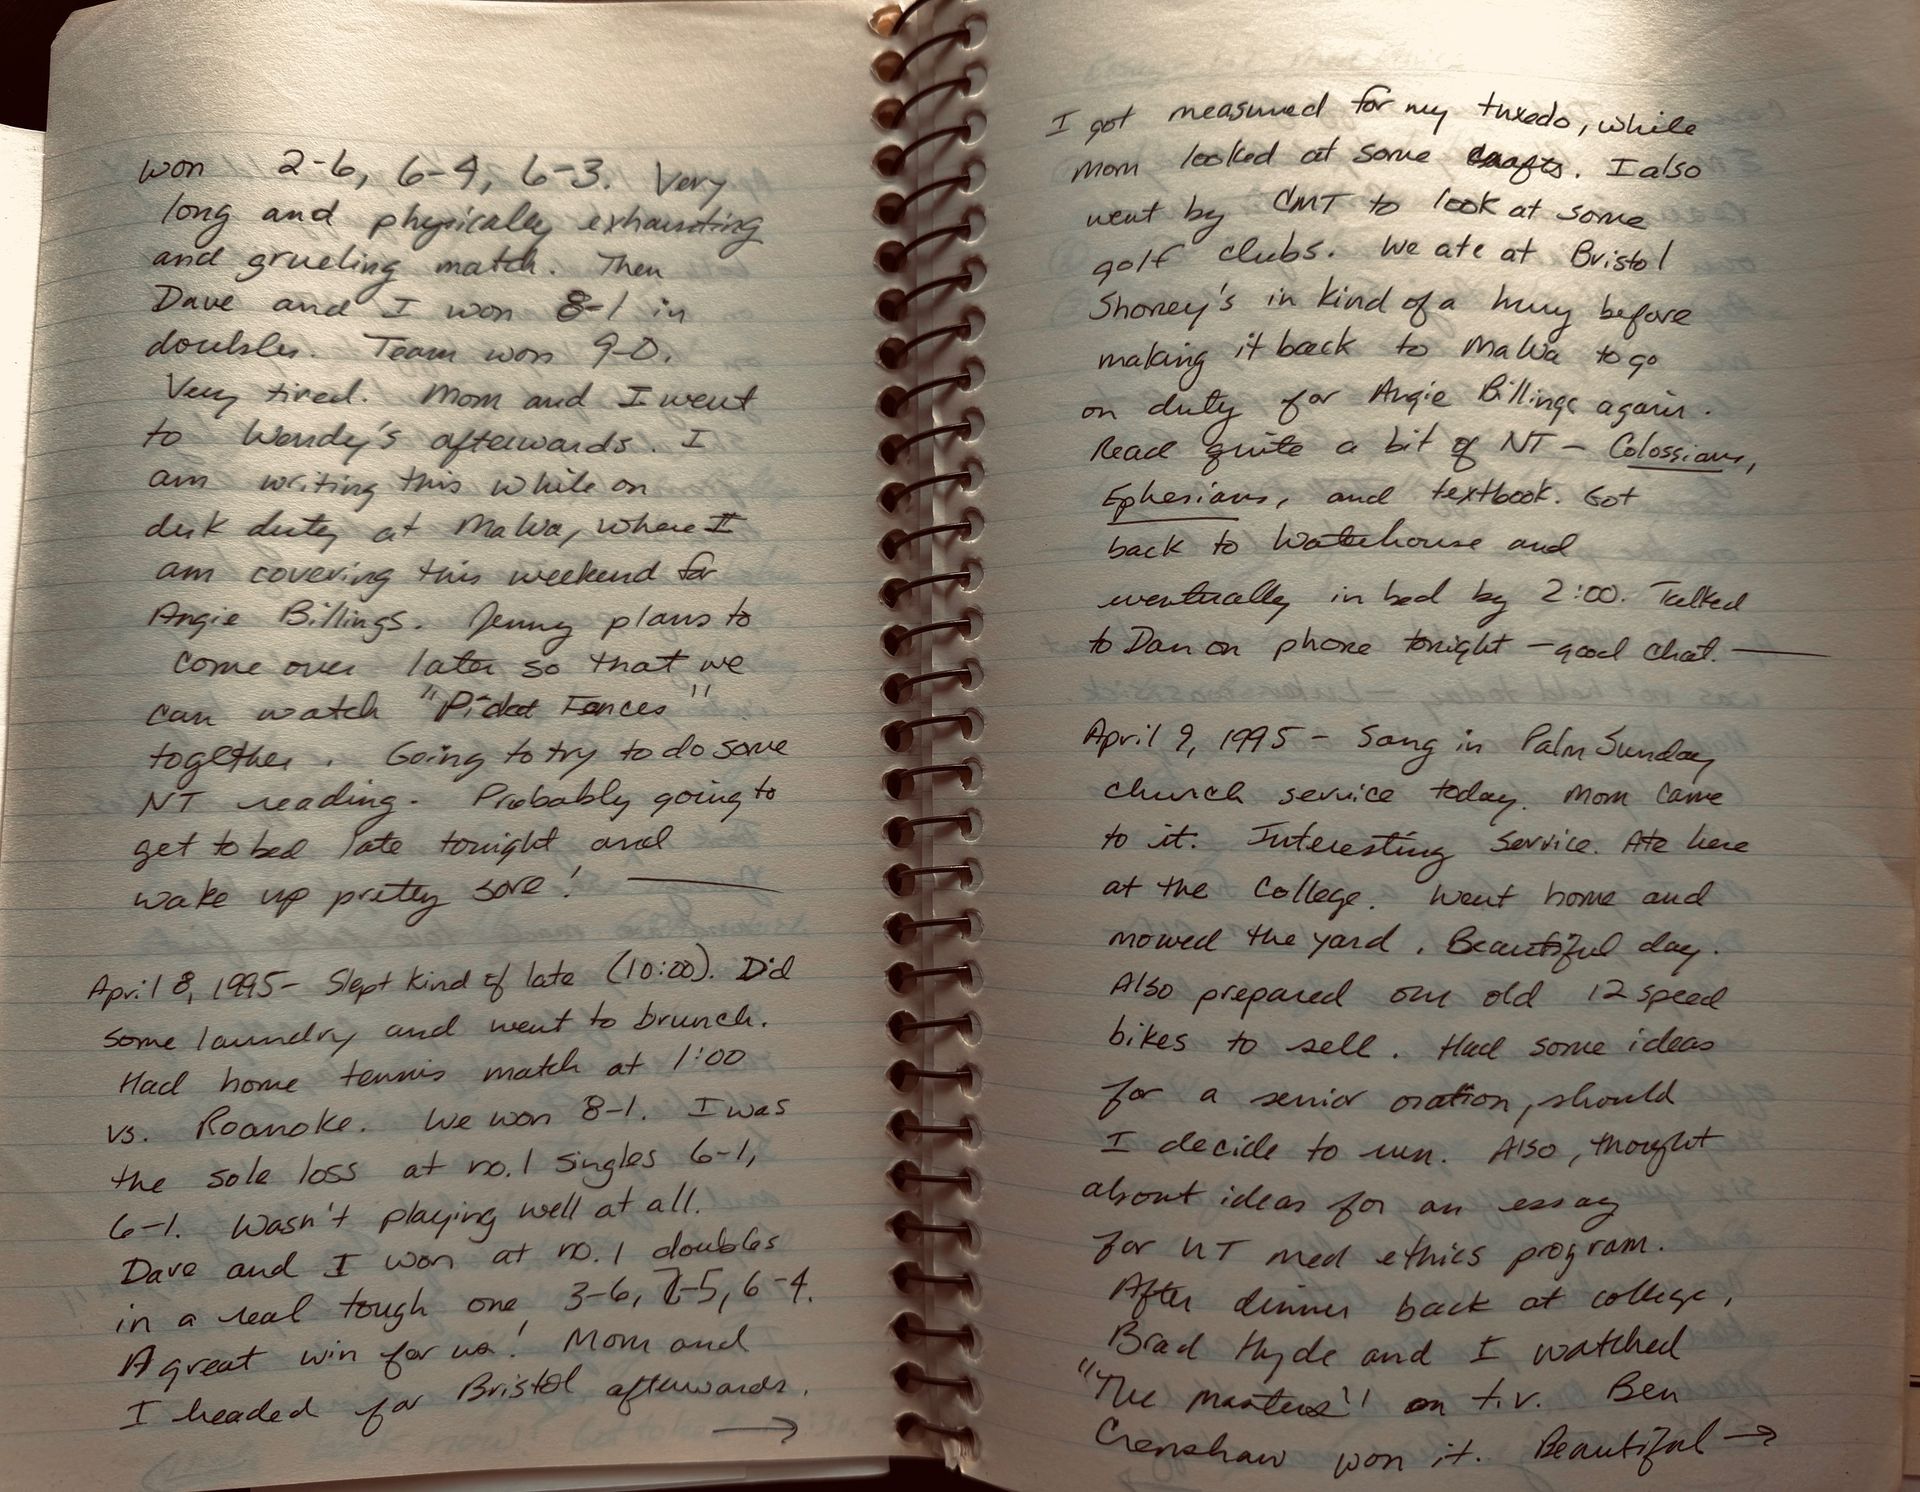 won 2-6, 6-4, 6-3. Very
long and physically exhausting
and grueling match. Then
Dave and I won 8-1 in
doubles. Team won 9-0.
Very tired. Mom and I went
to Wendy's afterwards. I
am writing this while on
desk duty at MaWa, where I
am covering this weekend for
Angie Billings. Jenny plans to
come over later so that we
can watch "Picket Fences"
together. Going to try to do some
NT reading. Probably going to
get to bed late tonight and
wake up pretty sore! —
April 8, 1995- Slept kind of late (10:00). Did
some laundry and went to brunch.
Had home tennis match at 1:00
vs. Roanoke. We won 8-1. I was
the sole loss at no.1 singles 6-1,
6-1. Wasn't playing well at all.
Dave and I won at no. 1 doubles
in a real tough one, 3-6, 7-5, 6-4.
A great win for us! Mom and
I headed for Bristol afterwards.
→
I got measured for my tuxedo, while
Mom looked at some crafts. I also
went by CMT to look at some
golf clubs. We ate at Bristol
Shoney's in kind of a hurry before
making it back to MaWa to go
on duty for Angie Billings again.
Read quite a bit of NT - Colossians,
Ephesians, and textbook. Got
back to Waterhouse and
eventually in bed by 2:00. Talked
to Dan on phone tonight - good chat. —
April 9, 1995 - Sang in Palm Sunday
church service today. Mom came
to it. Interesting service. Ate here
at the College. Went home and
mowed the yard. Beautiful day.
Also prepared our old 12 speed
bikes to sell. Had some ideas
for a senior oration, should
I decide to run. Also, thought
about ideas for an essay
for UT med ethics program.
After dinner back at college,
Brad Hyde and I watched
"The Masters" on t.v. Ben
Crenshaw won it. Beautiful →